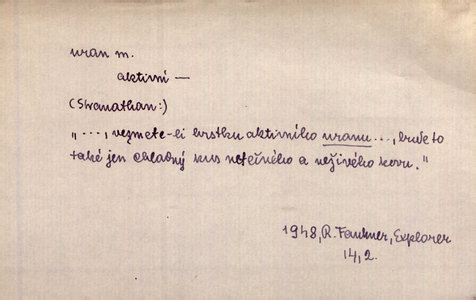 uran m.
aktivní —
(Stranathan:)
„..., vezmete-li hrstku aktivního uranu..., bude to
také jen chladný kus netečného a neživého kovu."
1948, R. Faukner, Explorer
14, 2.